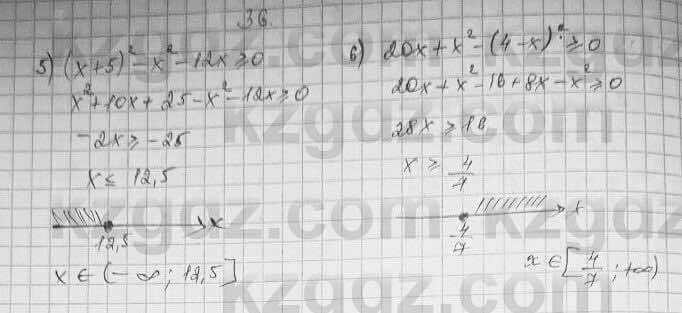 36
5) (x+5)² - x² - 12x ≥ 0
x² + 10x + 25 - x² - 12x ≥ 0
-2x ≥ -25
x ≤ 12,5
12,5 x
x ∈ (-∞; 12,5]
6) 20x + x² - (4-x)² ≥ 0
20x + x² - 16 + 8x - x² ≥ 0
28x ≥ 16
x ≥ 4/7
4/7 x
x ∈ [4/7; +∞)
kzgdz.com
kzgdz.com
kzgdz.com
kzgdz.com